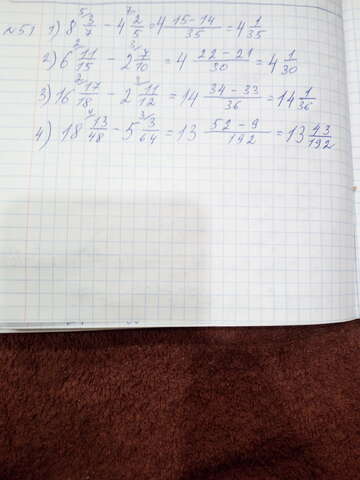 №51 1) 8 5/ 3/7 - 4 7/ 2/5 = 4 15-14/35 = 4 1/35
2) 6 2/ 11/15 - 2 3/ 7/10 = 4 22-21/30 = 4 1/30
3) 16 2/ 17/18 - 2 3/ 11/12 = 14 34-33/36 = 14 1/36
4) 18 4/ 13/48 - 5 3/ 3/64 = 13 52-9/192 = 13 43/192